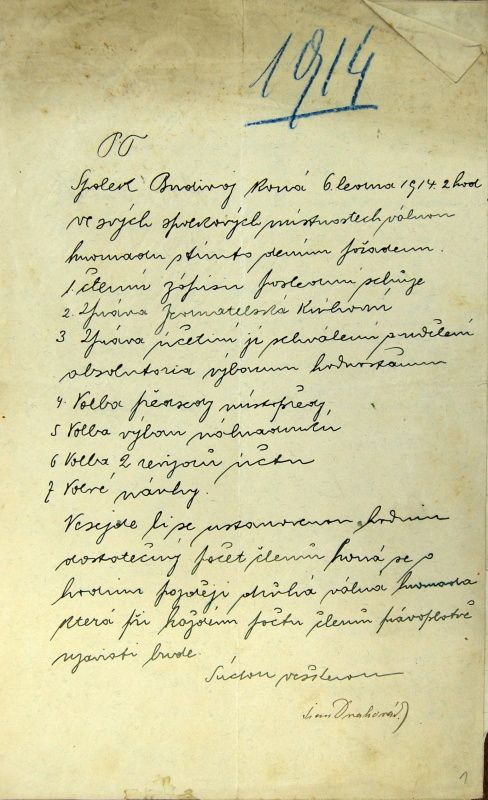 1914
PT
Spolek Budivoj koná 6 ledna 1914 2 hod
ve svých spolkových místnostech valnou
hromadu s tímto denním pořadem.
1. Čtení zápisu poslední schůze
2. Zpráva jednatelská knihovní
3 Zpráva účetní její schválení a udělení
absolutoria výboru hodnostářům
4. Volba předsedy místopředs,
5 Volba výboru náhradníků
6 Volba 2 revizorů účtu
7 Volné návrhy.
Nesejde li se ustanovenou hodinu
dostatečný počet členů koná se o
hodinu později druhá valná hromada
která při každém počtu členů právoplatně
usnášeti bude.
S úctou veškerou
Jan
1